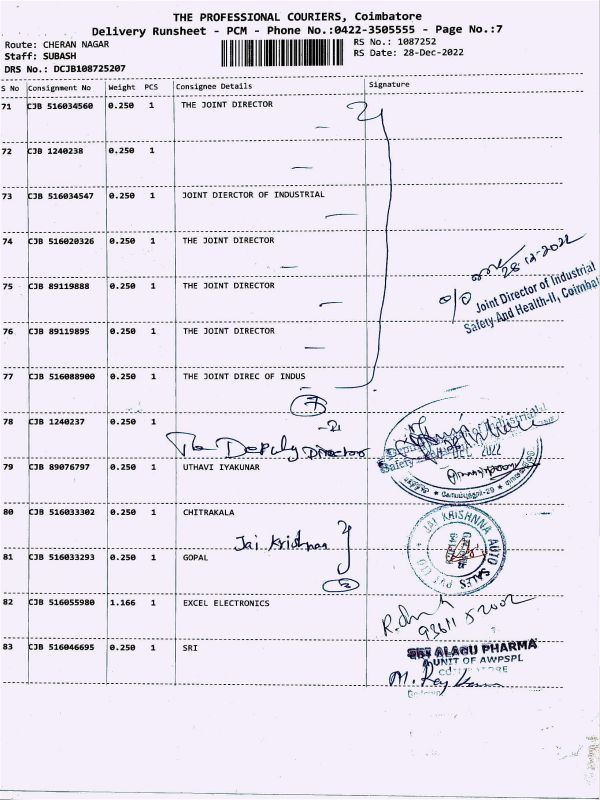 THE PROFESSIONAL COURIERS, Coimbatore
Delivery Runsheet - PCM - Phone No.:0422-3505555 - Page No.:7
Route: CHERAN NAGAR
RS No.: 1087252
Staff: SUBASH
RS Date: 28-Dec-2022
DRS No.: DCJB108725207
S No Consignment No Weight PCS Consignee Details Signature
71 CJB 516034560 0.250 1 THE JOINT DIRECTOR
72 CJB 1240238 0.250 1
73 CJB 516034547 0.250 1 JOINT DIERCTOR OF INDUSTRIAL
74 CJB 516020326 0.250 1 THE JOINT DIRECTOR
28.12.2022
75 CJB 89119888 0.250 1 THE JOINT DIRECTOR
Joint Director of Industrial
Safety And Health-II, Coimbat
76 CJB 89119895 0.250 1 THE JOINT DIRECTOR
77 CJB 516088900 0.250 1 THE JOINT DIREC OF INDUS
7
78 CJB 1240237 0.250 1
The Deputy Director
DEC 2022
79 CJB 89076797 0.250 1 UTHAVI IYAKUNAR
80 CJB 516033302 0.250 1 CHITRAKALA
Jai Krishnaa
JAI KRISHNNA AUTO SALES PVT LTD
81 CJB 516033293 0.250 1 GOPAL
82 CJB 516055980 1.166 1 EXCEL ELECTRONICS
83 CJB 516046695 0.250 1 SRI
SRI ALAGU PHARMA
A UNIT OF AWPSPL